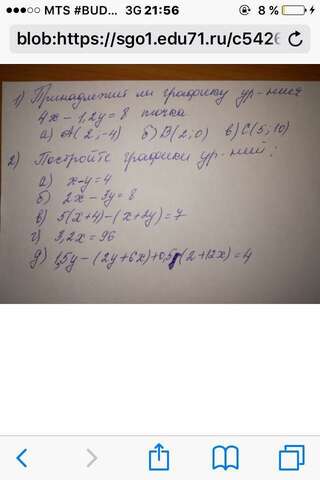 MTS #BUD... 3G 21:56 8 %
blob:https://sgo1.edu71.ru/c5426
1) Принадлежит ли графику ур-ния
4x - 1,2y = 8 точка
а) A(2;-4) б) B(2;0) в) C(5;10)
2) Постройте графики ур-ний:
а) x-y=4
б) 2x - 3y = 8
в) 5(x+4)-(x+2y)=7
г) 3,2x = 96
д) 1,5y-(2y+6x)+0,5(2+12x)=4